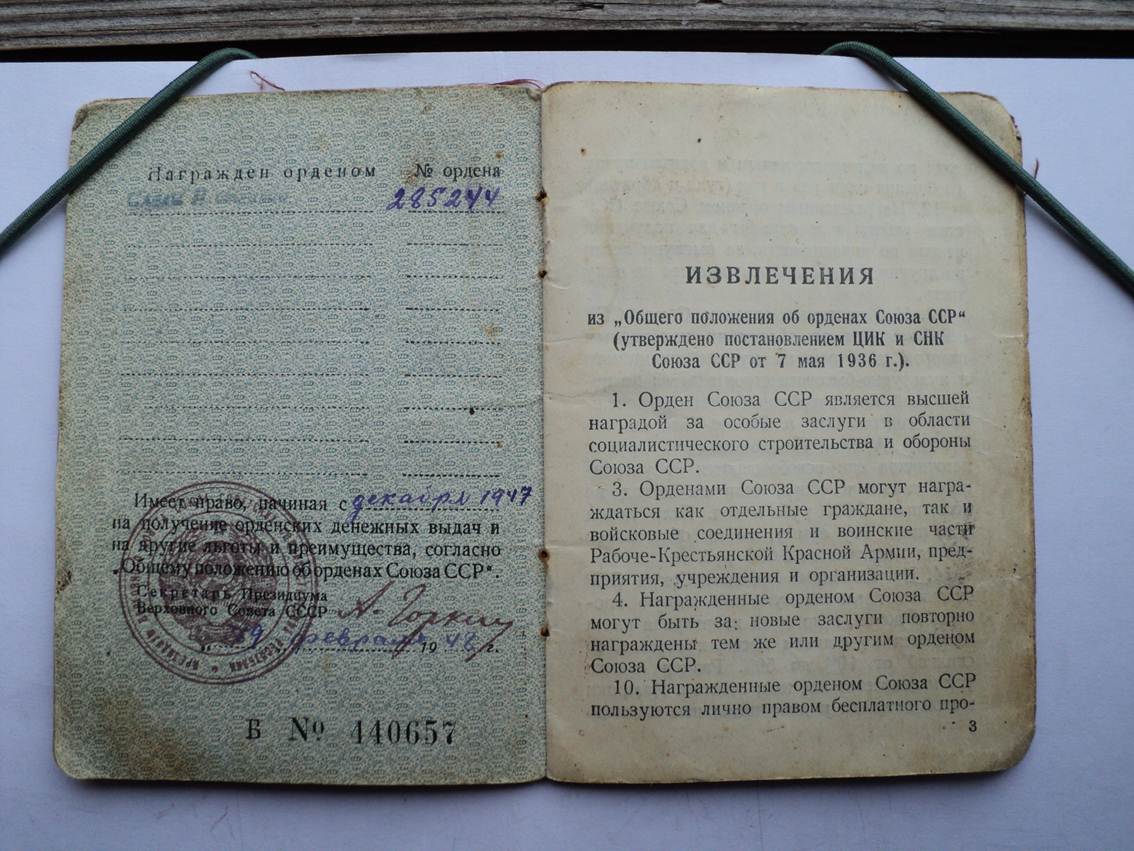 Награжден орденом № ордена
Славы 285244
Имеет право, начиная с декабря 1947
на получение орденских денежных выдач и
на другие льготы и преимущества, согласно
„Общему положению об орденах Союза ССР“.
Секретарь Президиума
Верховного Совета СССР А. Горкин
„19 февраля 1948 г.
Б № 440657
ИЗВЛЕЧЕНИЯ
из „Общего положения об орденах Союза ССР“
(утверждено постановлением ЦИК и СНК
Союза ССР от 7 мая 1936 г.).
1. Орден Союза ССР является высшей
наградой за особые заслуги в области
социалистического строительства и обороны
Союза ССР.
3. Орденами Союза ССР могут награ-
ждаться как отдельные граждане, так и
войсковые соединения и воинские части
Рабоче-Крестьянской Красной Армии, пред-
приятия, учреждения и организации.
4. Награжденные орденом Союза ССР
могут быть за новые заслуги повторно
награждены тем же или другим орденом
Союза ССР.
10. Награжденные орденом Союза ССР
пользуются лично правом бесплатного про-
3